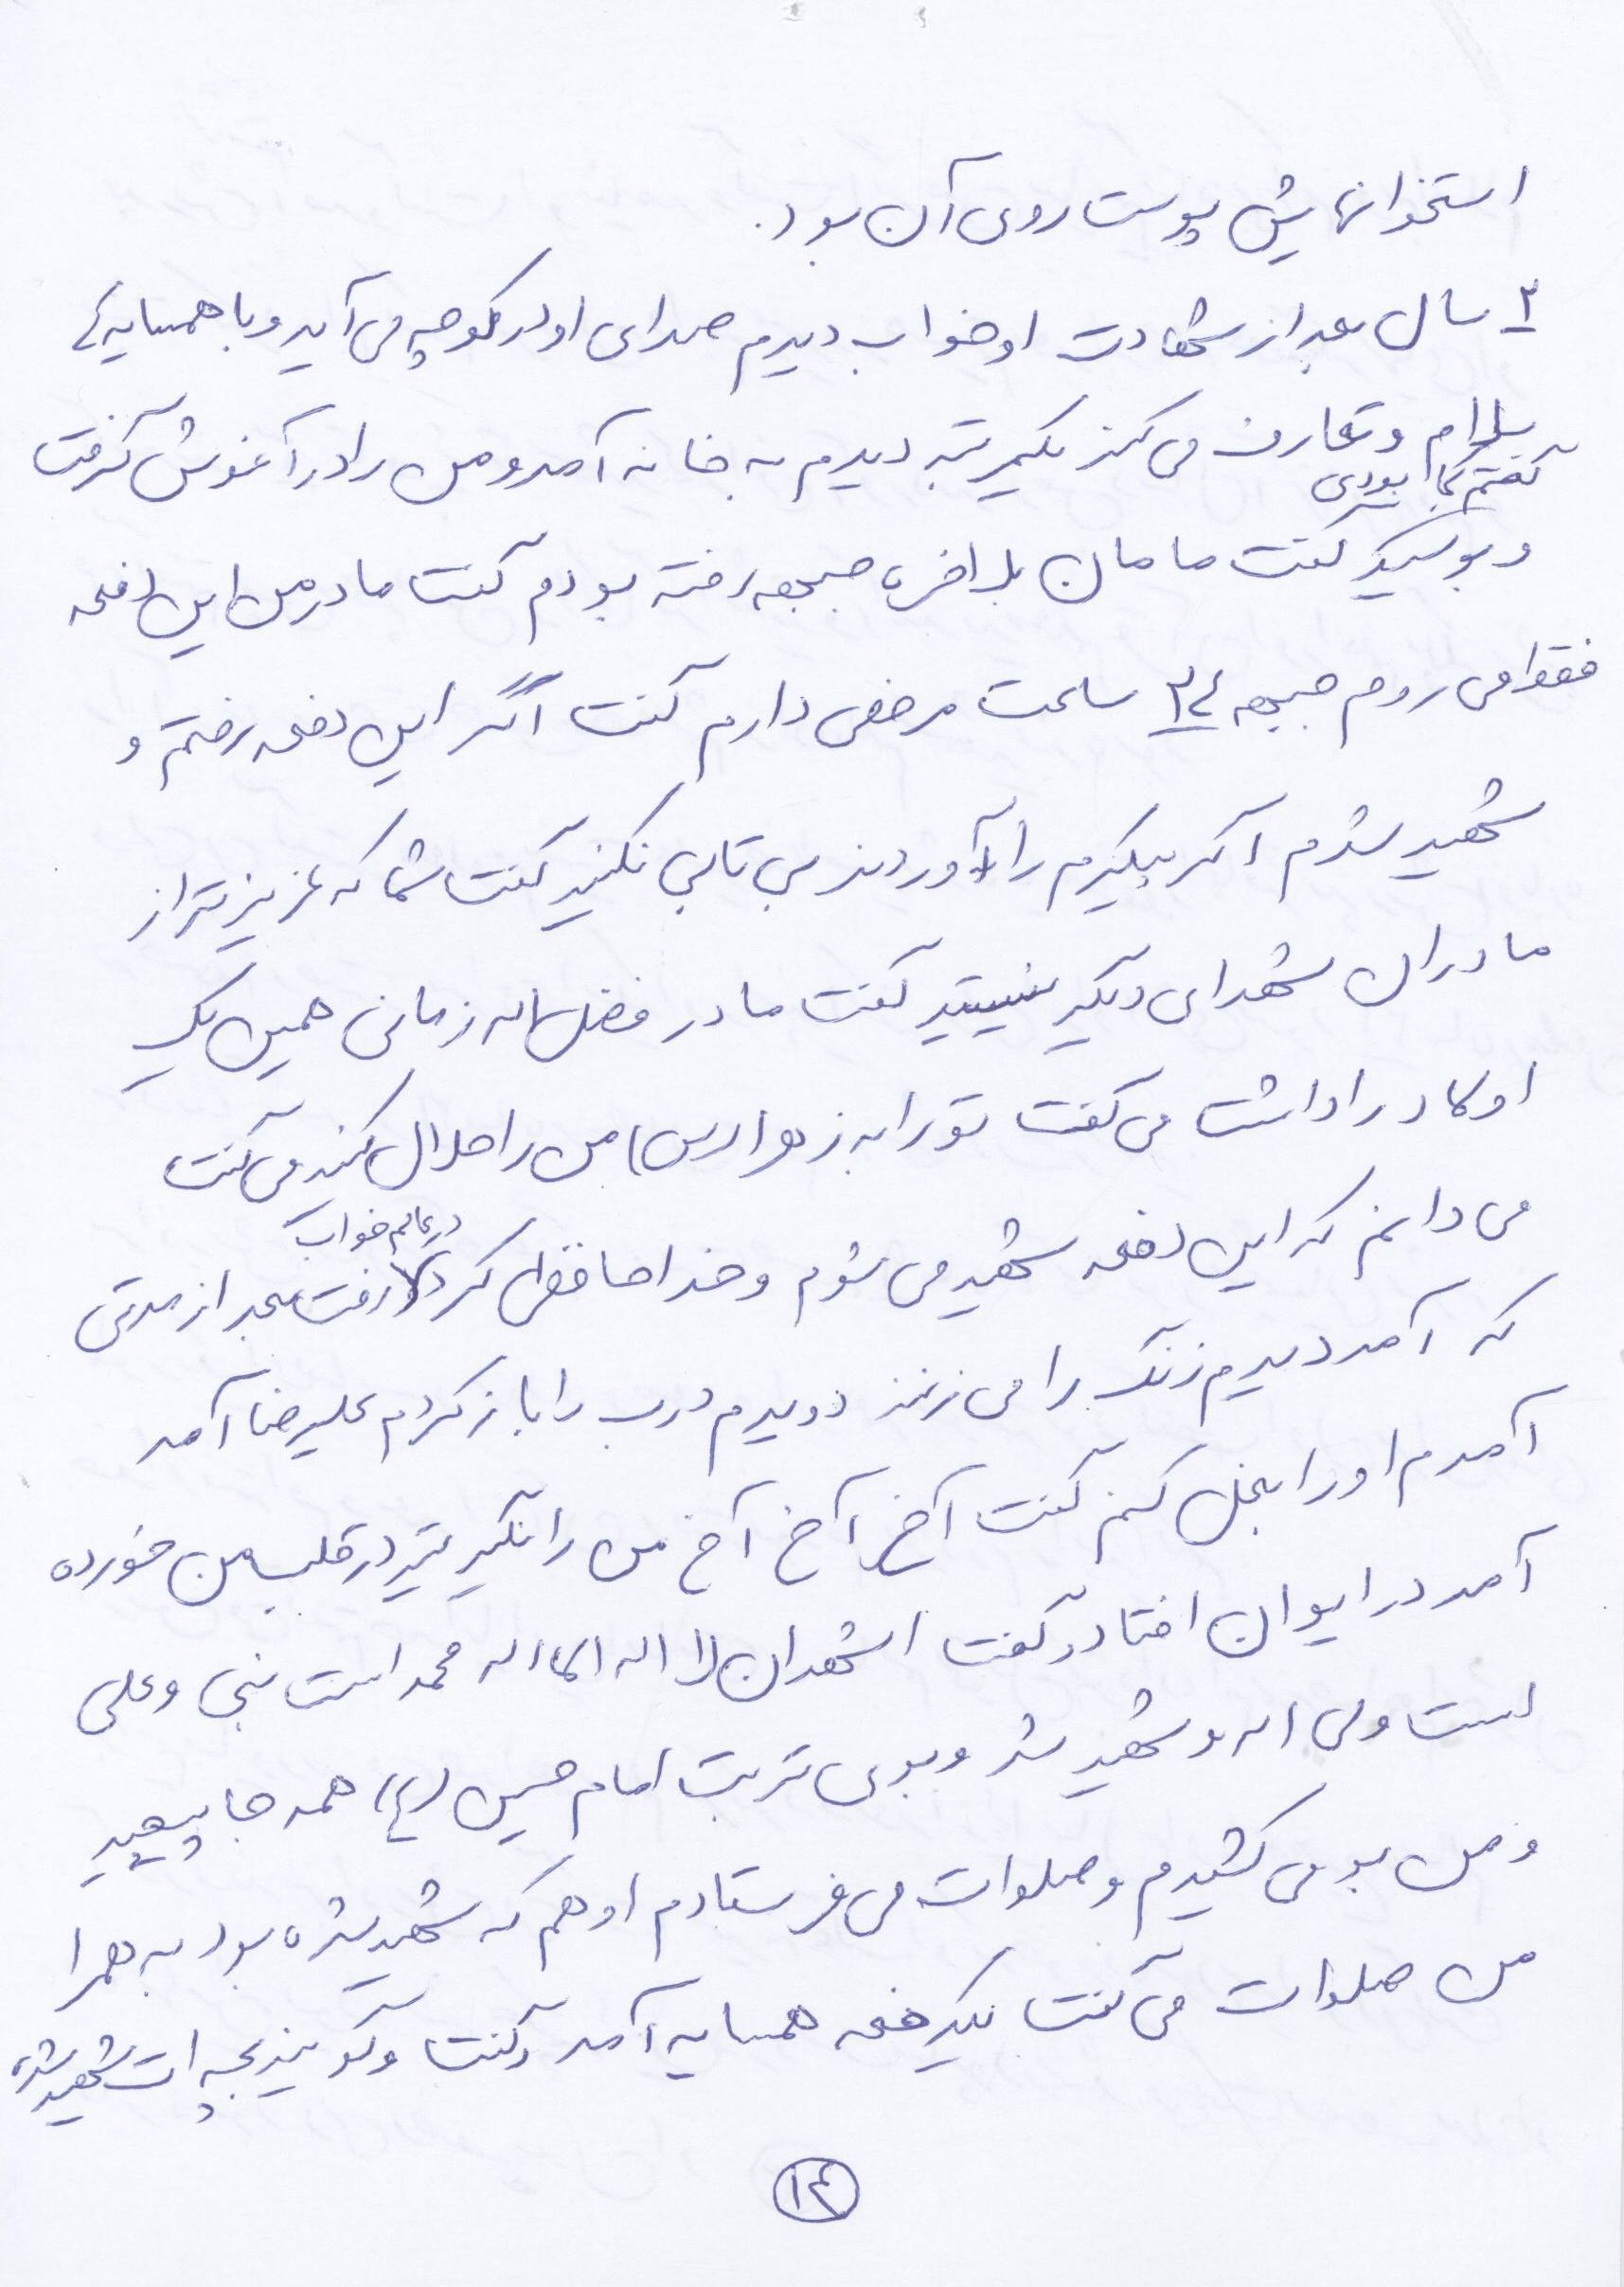 استخوانهایش پوست روی آن بود.
۲ سال بعد از شهادت او خواب دیدم صدای او در کوچه می آید و با همسایه ها
سلام و تعارف می کند یکمرتبه دیدم به خانه آمد و من را در آغوش گرفت
گفتم کجا بودی
و بوسید گفت مامان بلاخره جبهه رفته بودم گفت مادر من این دفعه
فقط می روم جبهه ۲۴ ساعت مرخصی دارم گفت اگر این دفعه رفتم و
شهید شدم اگر پیکرم را آوردند بی تابی نکنید گفت شما که عزیزتر از
مادران شهدای دیگر نیستید گفت مادر فضل اله زمانی همین یک
اولاد را داشت می گفت تو را به زهرا (س) من را حلال کنید می گفت
می دانم که این دفعه شهید می شوم و خداحافظی کرد و رفت بعد از مدتی
در عالم خواب
که آمد دیدم زنگ را می زنند دویدم درب را باز کردم علیرضا آمد
آمدم او را بغل کنم گفت آخ آخ آخ من را نگیر تیر در قلب من خورده
آمد در ایوان افتاد و گفت اشهد ان لا اله الا اله محمد است نبی و علی
است ولی اله و شهید شد و بوی تربت امام حسین (ع) همه جا پیچید
و من بو می کشیدم و صلوات می فرستادم او هم که شهید شده بود به همرا
من صلوات می گفت یکدفعه همسایه آمد و گفت و گویند بچه ات شهید شده
۱۲